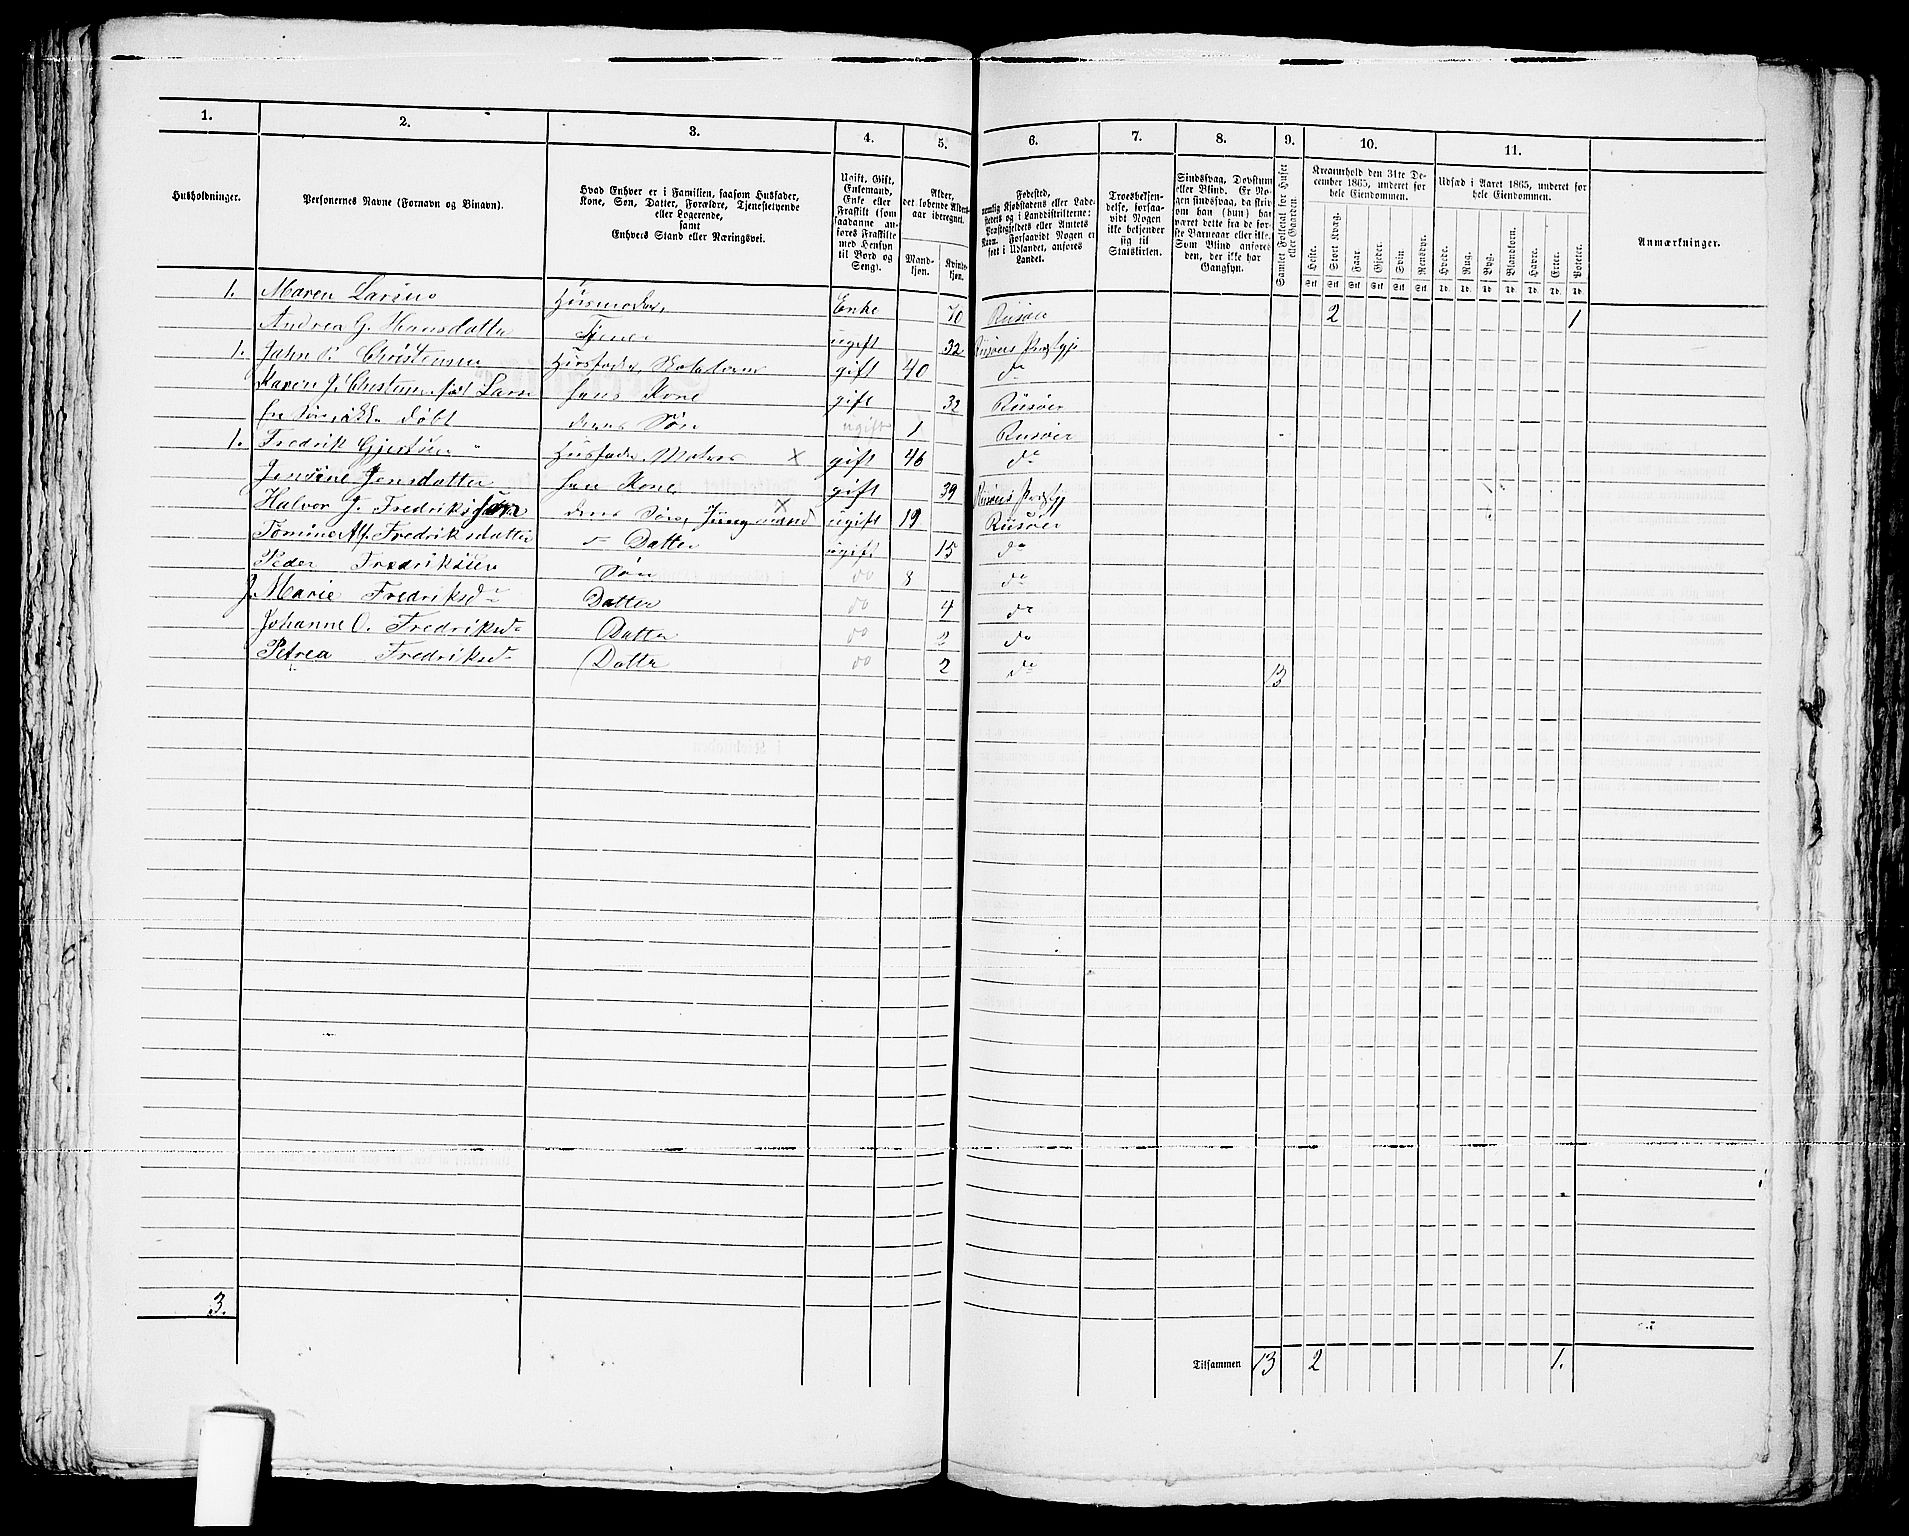 1. 2. 3. 4. 5. 6. 7. 8. 9. 10. 11.
Husholdninger.
Personernes Navne (Fornavn og Binavn).
Hvad Enhver er i Familien, saasom Husfader,
Kone, Søn, Datter, Forældre, Tjenestetyende
eller Logerende,
samt
Enhvers Stand eller Næringsvei.
Ugift, Gift,
Enkemand,
Enke eller
Fraskilt (som
saadanne an-
føres Fraskilte
med Hensyn
til Bord og
Seng).
Alder,
det løbende Alders-
aar iberegnet.
Mand-
kjøn.
Kvinde-
kjøn.
Fødested,
nemlig Kjøbstadens eller Lade-
stedets og i Landdistrikterne:
Præstegjeldets eller Amtets
Navn. Forsaavidt Nogen er
født i Udlandet, anføres
Landet.
Troesbekjen-
delse, forsaa-
vidt Nogen
ikke bekjender
sig til
Statskirken.
Sindssvag, Døvstum
eller Blind. Er No-
gen sindssvag, da skriv
om han (hun) har
været dette fra de før-
ste Barneaar eller ikke.
Som Blind anføres
den, der ikke har
Gangsyn.
Samlet Folketal for Huset
eller Gaarden.
Kreaturhold den 31te De-
cember 1865, underet for
hele Eiendommen.
Heste. Stort Kvæg. Faar. Gjeder. Svin. Rensdyr.
Stk Stk Stk Stk Stk Stk
Udsæd i Aaret 1865, underet for
hele Eiendommen.
Hvede. Rug. Byg. Blandkorn. Havre. Erter. Poteter.
Td. Td. Td. Td. Td. Td. Td.
Anmærkninger.
1. Maren Larsine Husmoder, Enke 70 Risøer 2 1
Andrea G. Hansdatter Tjener ugift 32 Risøers Præstgj
1. John P. Christensen Husfader, gift 40 do
Karen J. Christense født Larsen hans Kone gift 32 Risøer
ikke døbt deres Søn ugift 1 Risøer
1. Fredrik Gjertsen Husfader, Matros X gift 46 do
Jensine Jensdatter hans Kone. gift 39 Risøers Præstgj
Halvor J. Fredriksen deres Søn, Jungmand X ugift 19 Risøer
Tomine Fredriksdatter Datter ugift 15 do
Peder Fredriksen Søn do 8 do
J. Marie Fredriksd Datter do 4 do
Johanne O. Fredriksd Datter do 2 do
Petrea Fredriksd Datter do 2 do 13
3.
Tilsammen 13 2 1.